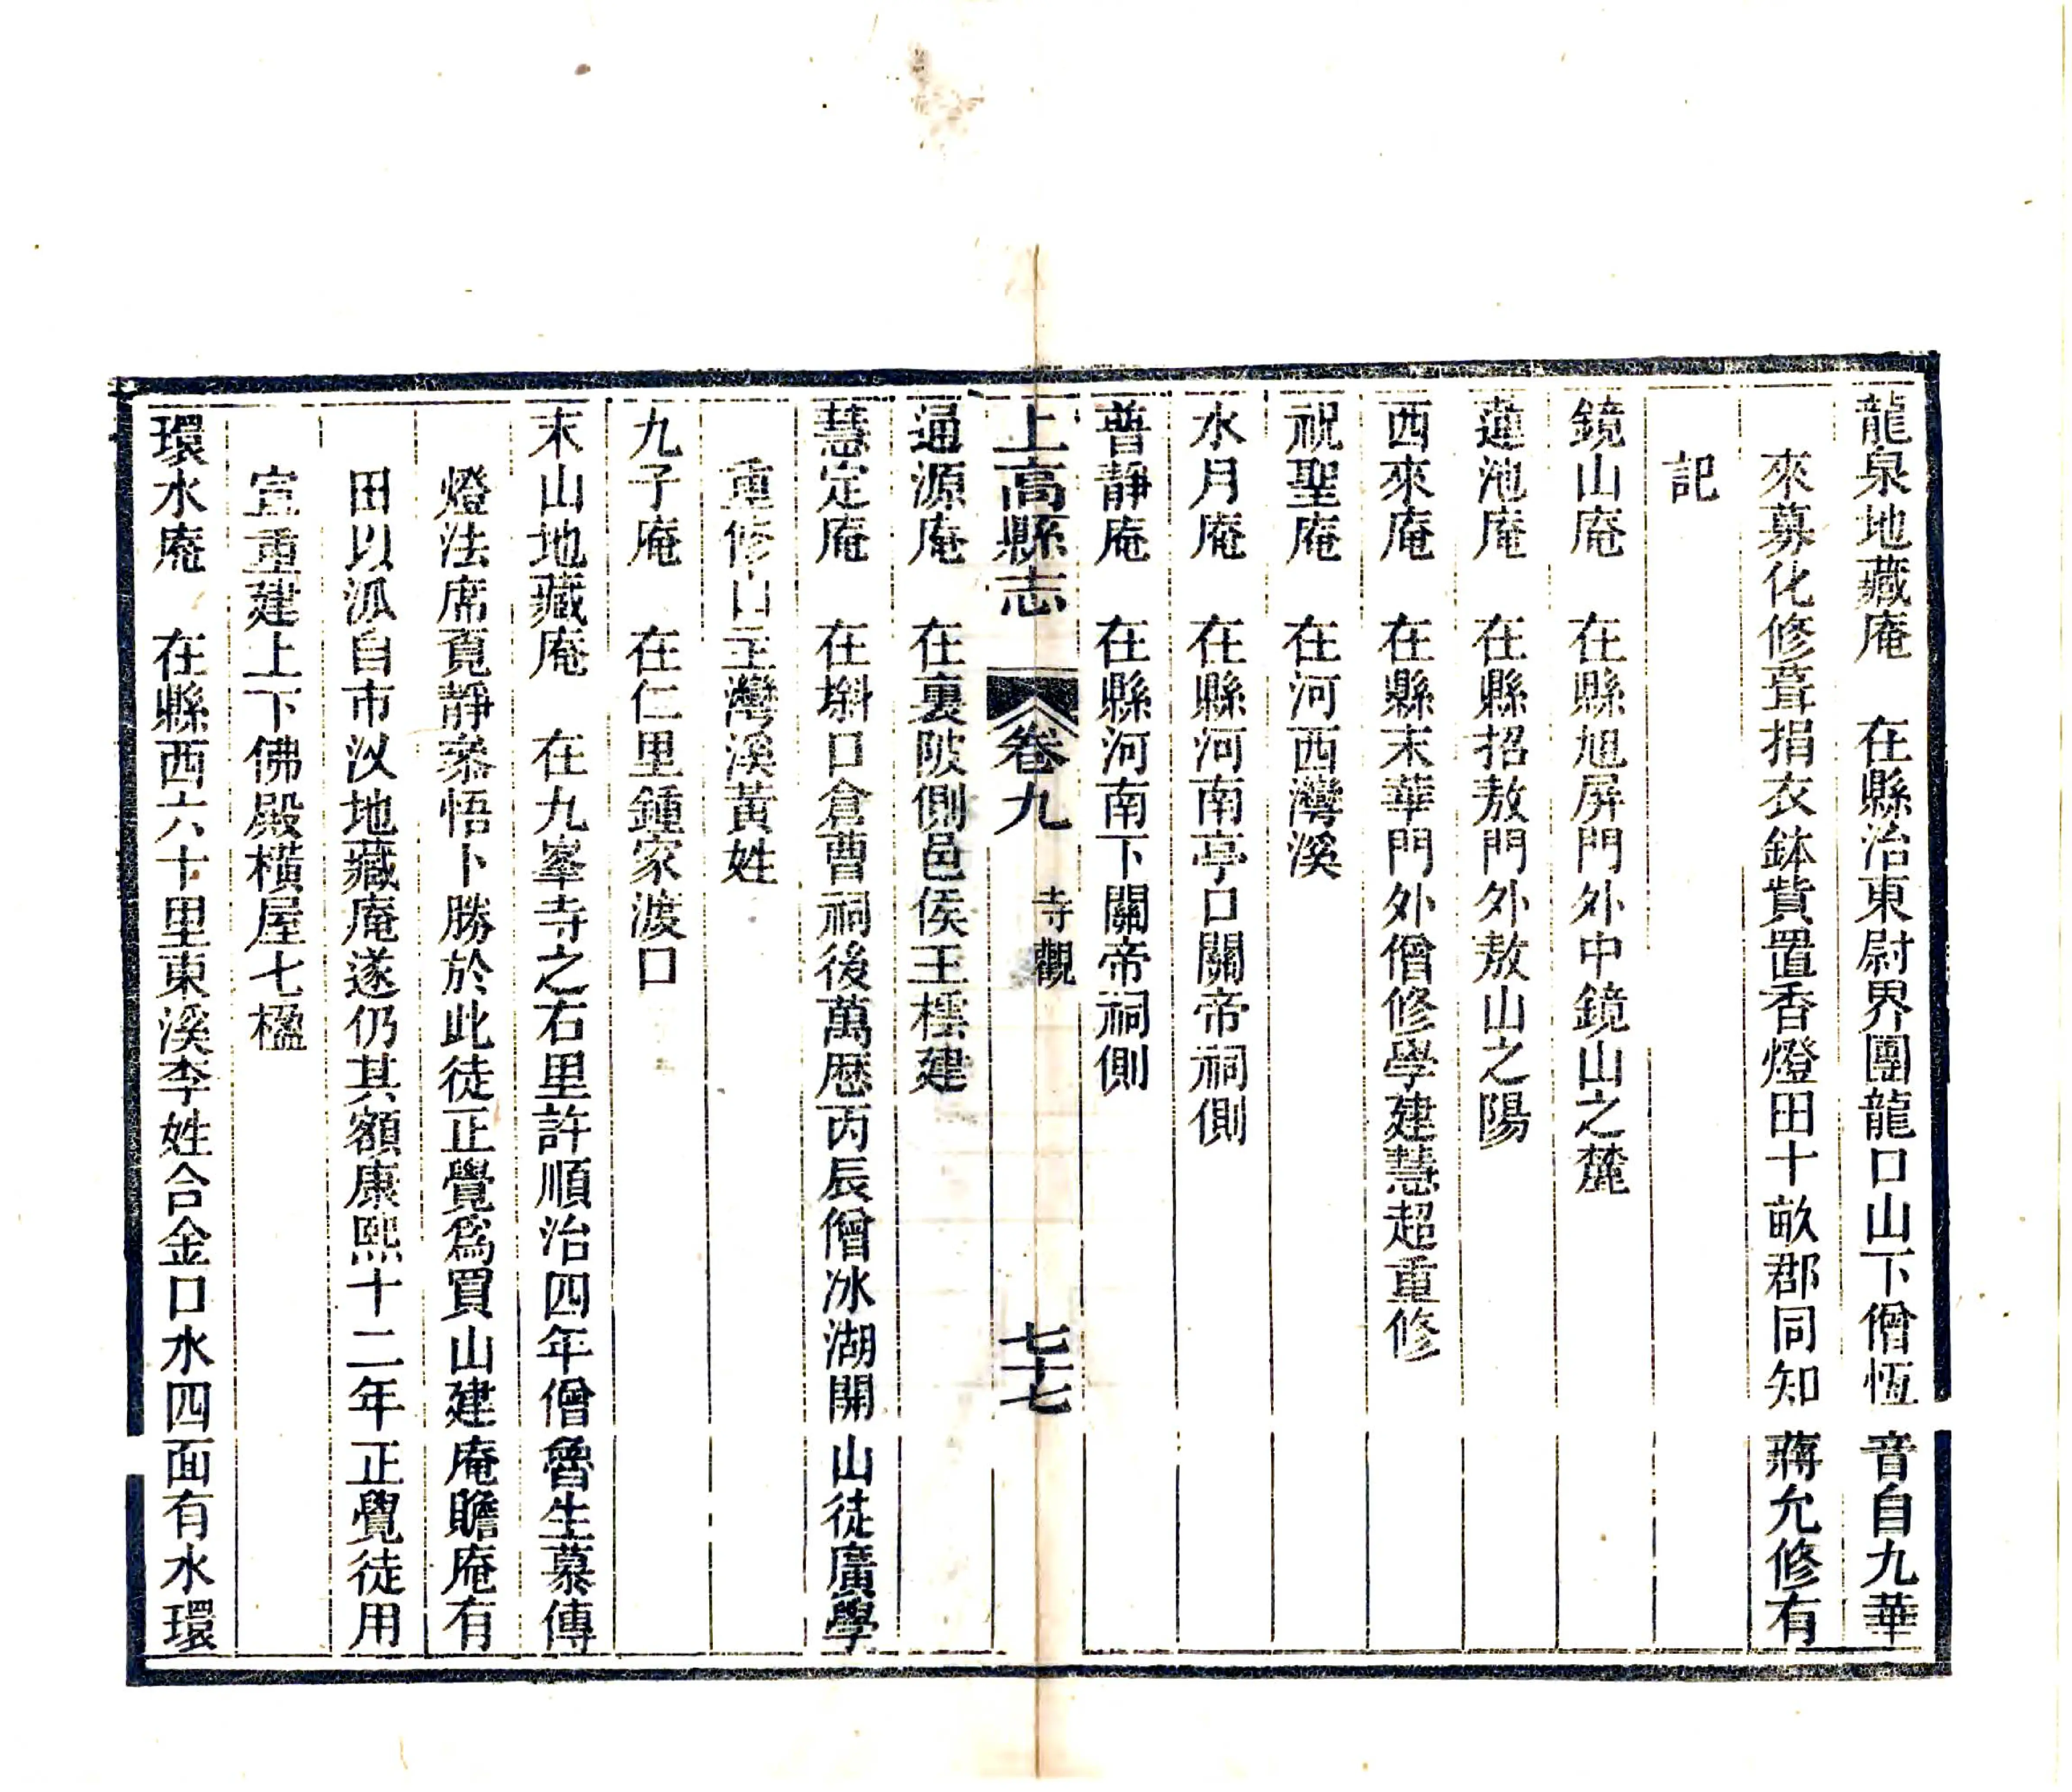 龍泉地藏庵　在縣治東尉界團龍口山下僧恆音自九華
來募化修葺捐衣鉢貲置香燈田十畝郡同知蔣允修有
記
鏡山庵　在縣旭屏門外中鏡山之麓
蓮池庵　在縣招敖門外敖山之陽
西來庵　在縣末華門外僧修學建慧超重修
祝聖庵　在河西灣溪
水月庵　在縣河南亭口關帝祠側
普靜庵　在縣河南下關帝祠側
上高縣志　卷九　寺觀　七十七
通源庵　在裏陂側邑侯王橒建
慧定庵　在斛口倉曹祠後萬厯丙辰僧冰湖開山徒廣學
重修山主灣溪黃姓
九子庵　在仁里鍾家渡口
末山地藏庵　在九峯寺之右里許順治四年僧魯生慕傳
燈法席覓靜叅悟卜勝於此徒正覺爲買山建庵贍庵有
田以派自市汊地藏庵遂仍其額康熙十二年正覺徒用
宣重建上下佛殿橫屋七楹
環水庵　在縣西六十里東溪李姓合金口水四面有水環